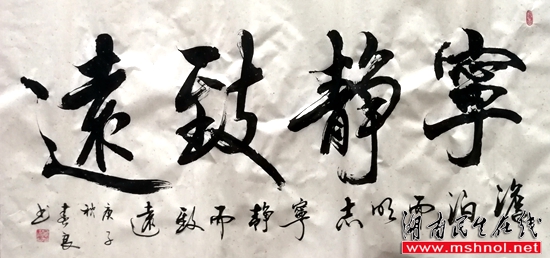 寧静致遠
澹泊而明志寧静而致遠
庚子
秋
春良
书
渭南民生在线
www.mshnol.net